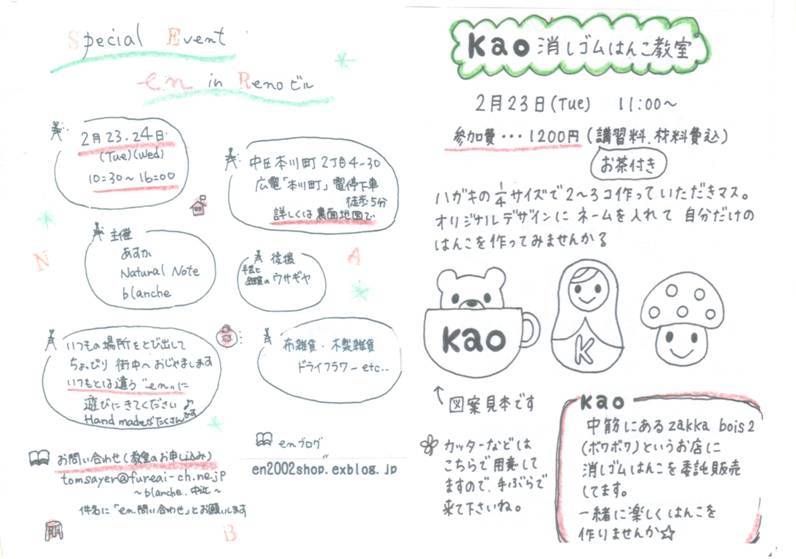 Special Event
en in Renoビル
2月23.24日
(Tue)(Wed)
10:30～16:00
中区本川町2丁目4-30
広電「本川町」電停下車
徒歩5分
詳しくは裏面地図で
主催
あすか
Natural Note
blanche
後援
手芸と
ウサギヤ
N
A
いつもの場所をとび出して
ちょっぴり街中へおじゃまします
いつもとは違う"en"に
遊びにきてください♪
Hand madeがたくさん
布雑貨・木製雑貨
ドライフラワー etc..
お問い合わせ(教室のお申し込み)
tomsayer@fureai-ch.ne.jp
～blanche.中江～
件名に「en.問い合わせ」とお願いします
enブログ
en2002shop.exblog.jp
B
kao 消しゴムはんこ教室
2月23日(Tue) 11:00～
参加費・・・1200円(講習料、材料費込)
お茶付き
ハガキの1/4サイズで2～3コ作っていただきマス。
オリジナルデザインに ネームを入れて 自分だけの
はんこを作ってみませんか?
kao
K
↑図案見本です
カッターなどは
こちらで用意して
ますので、手ぶらで
来て下さいね。
kao
中筋にあるzakka bois2
(ボワボワ)というお店に
消しゴムはんこを委託販売
してます。
一緒に楽しくはんこを
作りませんか☆